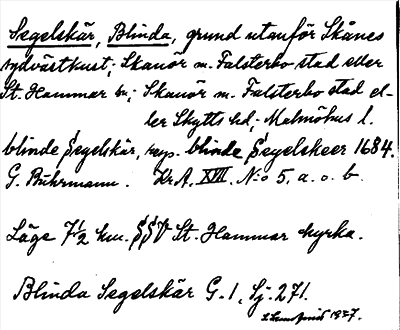 Segelskär, Blinda, grund utanför Skånes
sydvästkust; Skanör m. Falsterbo stad eller
St. Hammar sn; Skanör m. Falsterbo stad el-
ler Skytts hd; Malmöhus l.
blinde Segelskär, resp. blinde Segelskeer 1684.
G. Buhrmann. Kr.A. XVII. N:o 5. a. o. b.
Läge 7½ km. SSV St. Hammar kyrka.
Blinda Segelskär G. 1, Sj. 271.
1927.